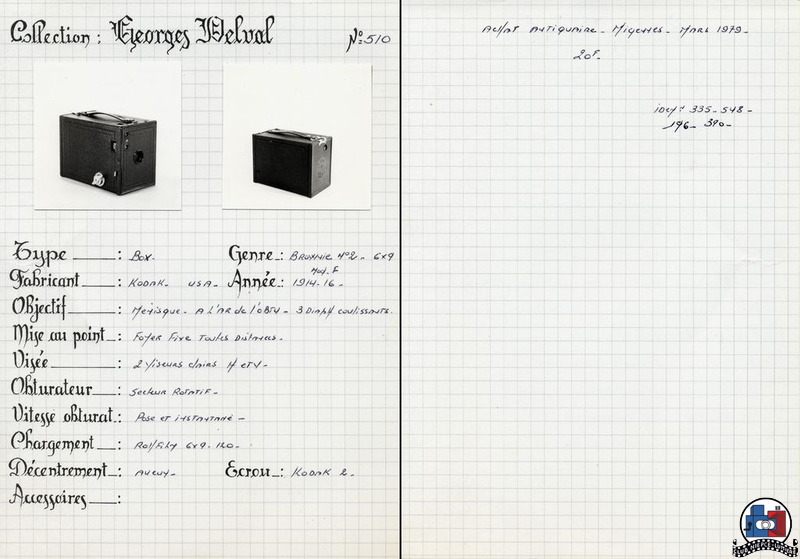 Collection : Georges Delval N° 510
Type : Box.
Genre : Brownie N°2 - 6x9
Mod. F
Fabricant : Kodak. USA.
Année : 1914-16.
Objectif : Ménisque - A l'AR de l'obtu - 3 Diaph coulissants.
Mise au point : Foyer Fixe Toutes Distances.
Visée : 2 Viseurs clairs H et V.
Obturateur : Secteur Rotatif -
Vitesse obturat. : Pose et instantané -
Chargement : Rollfilm 6x9 - 120 -
Décentrement : Aucun -
Ecrou : Kodak 2 -
Accessoires :
Achat Antiquaire - Migennes - Mars 1979 -
20F -
335 - 548 -
196 - 390 -